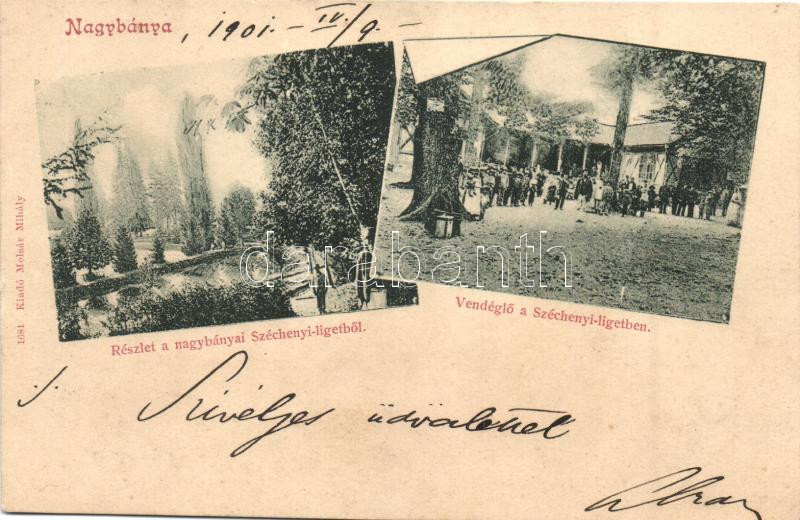 Nagybánya, 1901. IV/9.
Részlet a nagybányai Széchenyi-ligetből.
Vendéglő a Széchenyi-ligetben.
1681 Kiadó Molnár Mihály
darabanth
Szivélyes üdvözlettel